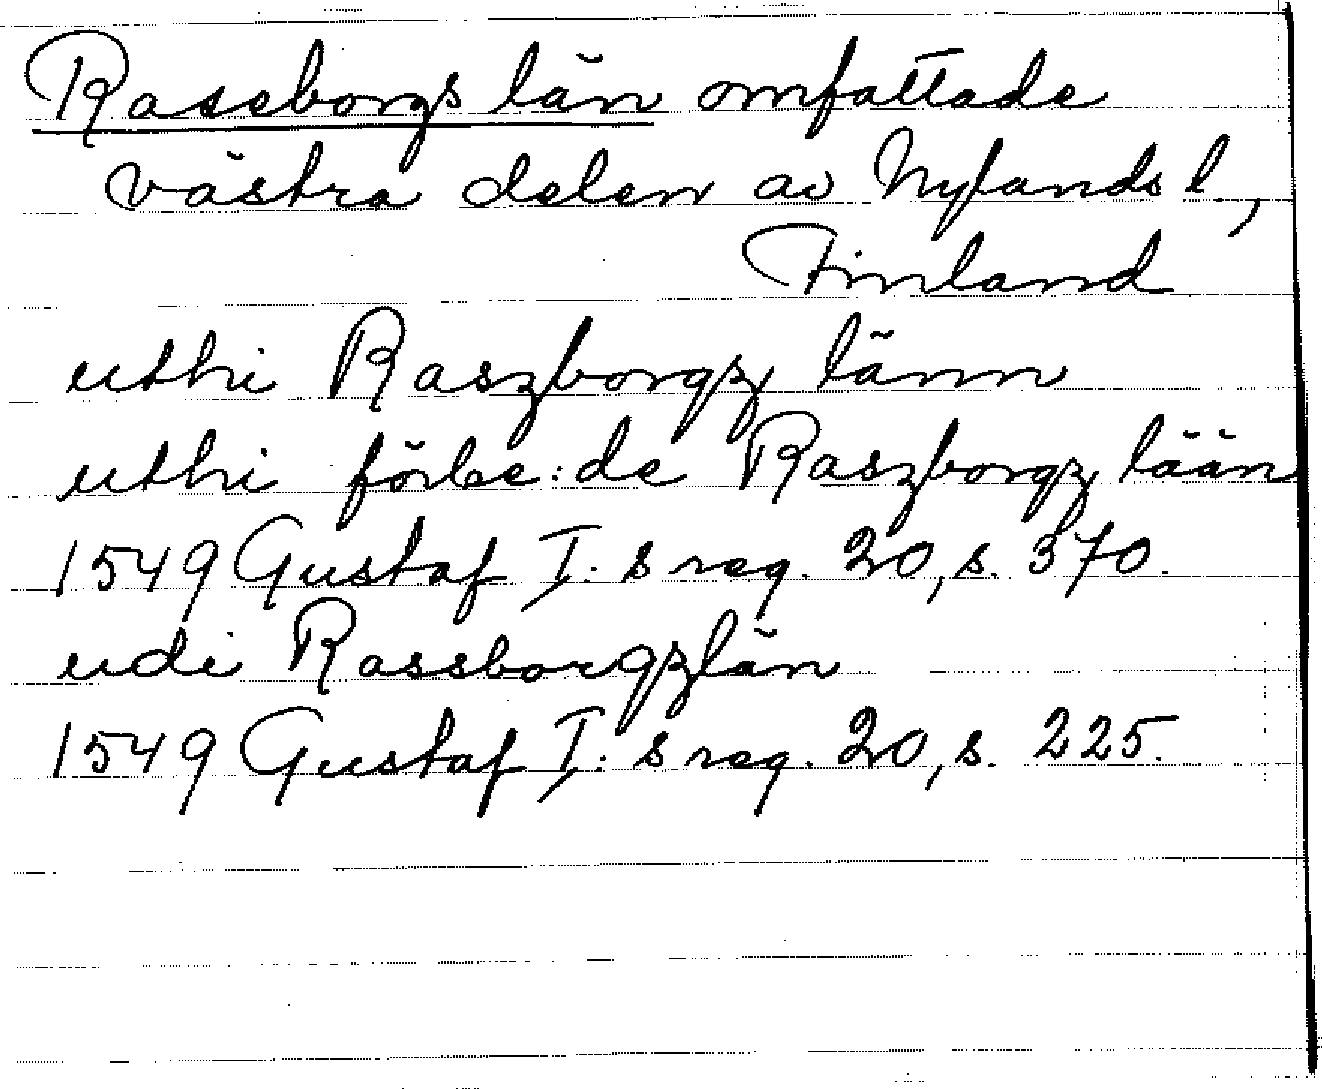 Raseborgs län omfattade
västra delen av Nylands l,
Finland
uthi Raszborgz länn
uthi förbe:de Raszborgz lään
1549 Gustaf I:s reg. 20, s. 370.
udi Rassborgzlän
1549 Gustaf I:s reg. 20, s. 225.